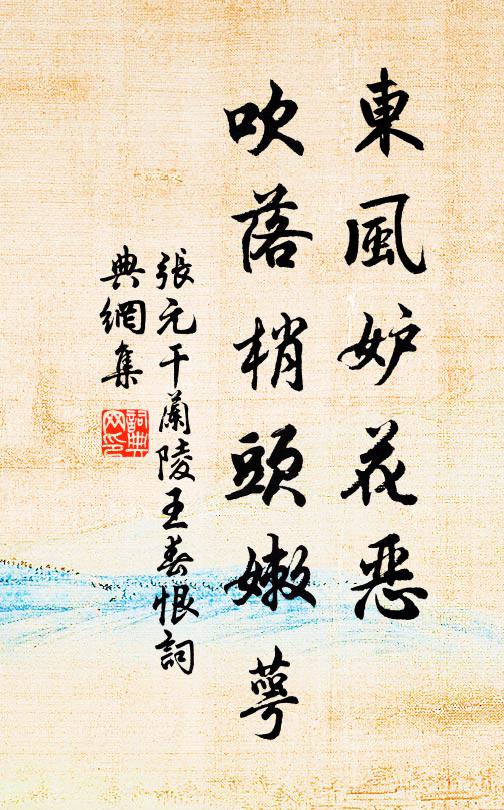 東風妒花恶
吹落梢頭嫩萼
張元干蘭陵王春恨詞
典網集
詞典網印